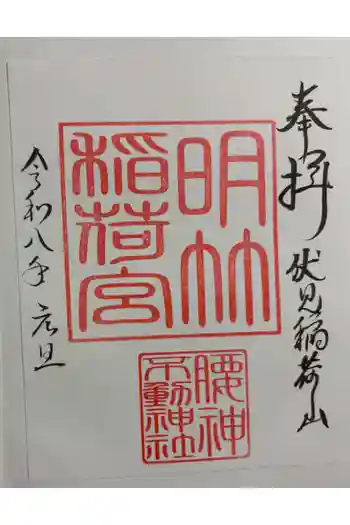 奉拝
伏見稲荷山
明竹
稲荷宮
腰神
不動神社
令和八年 元旦